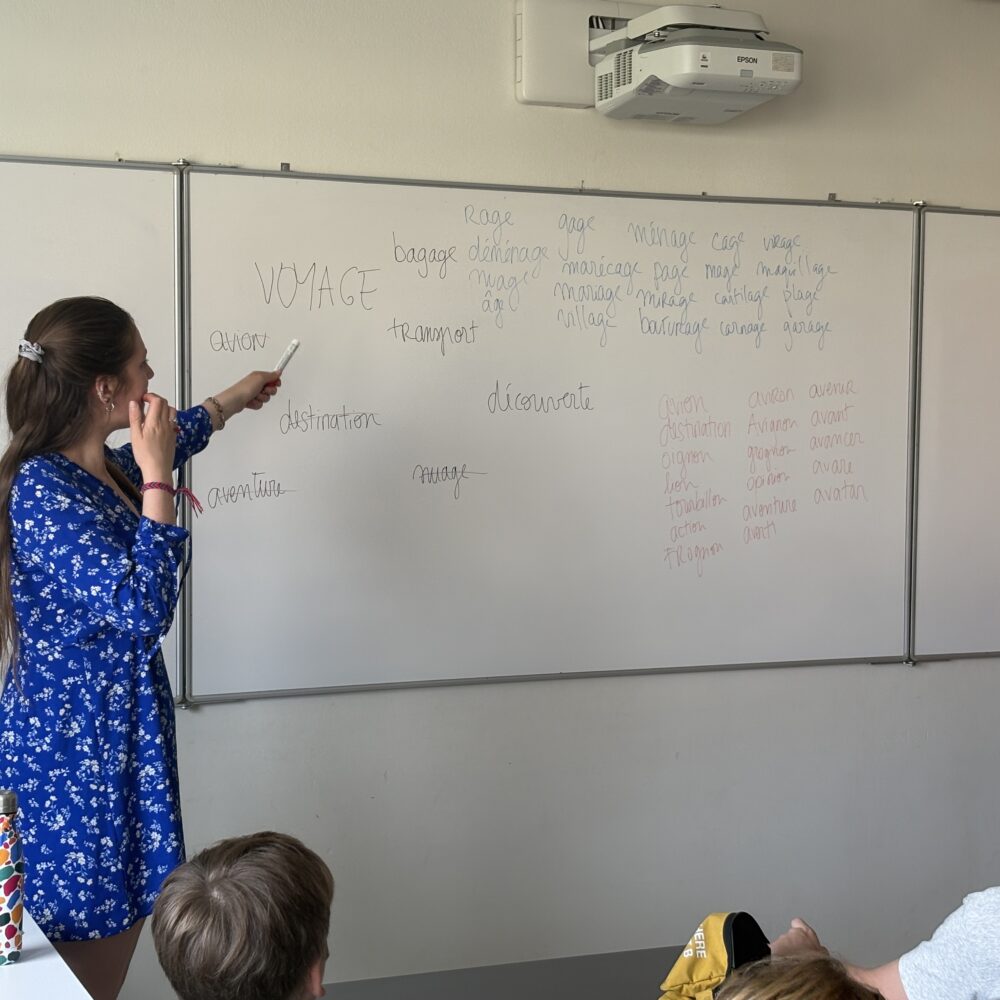 EPSON
Rage gage ménage cage virage
bagage déménage marécage page mage maquillage
VOYAGE nuage mariage mirage cartilage plage
âge village bouturage carnage garage
avion transport
destination découverte
aventure nuage
avion aviron avenir
destination Avignon avant
oignon grognon avancer
lion opinion avare
tourbillon aventure avatar
action avanti
TRognon